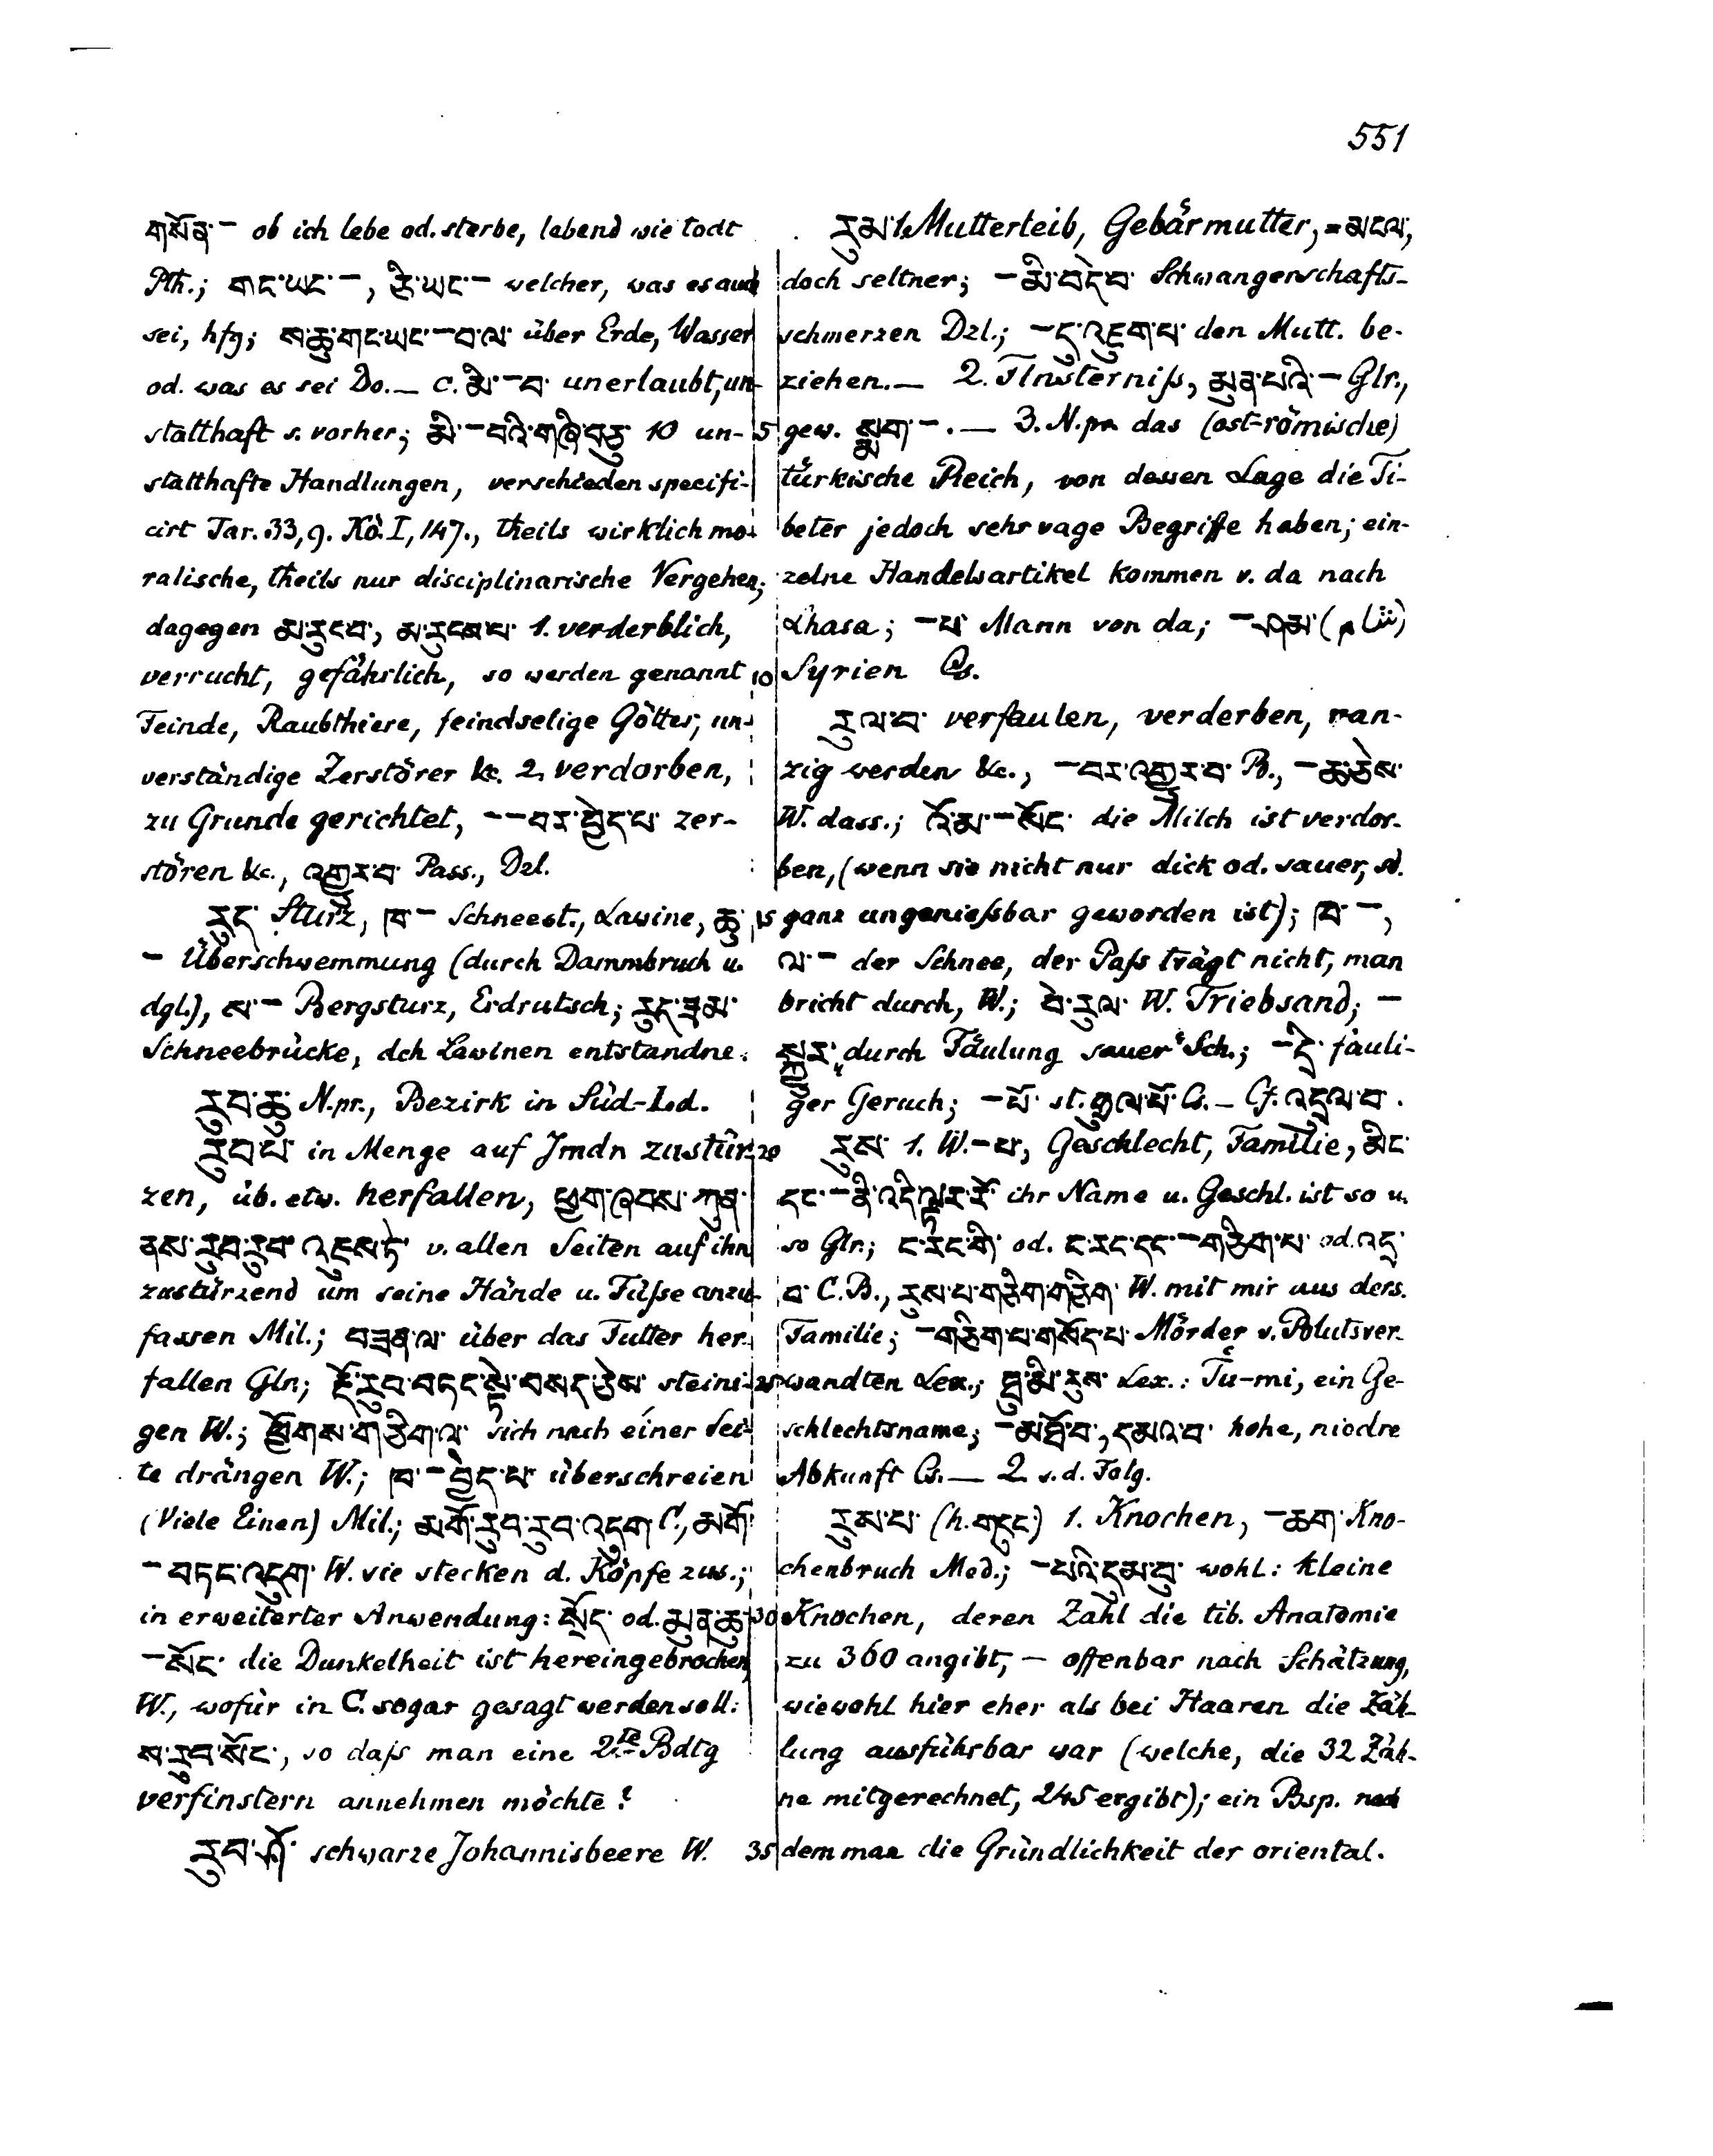 551
གསོན་ – ob ich lebe od. sterbe, lebend wie todt
Pth.; གང་ཡང་ –, ཅི་ཡང་ – welcher, was es auch
sei, hfg; ས་ཆུ་གང་ཡང་ – བ་ལ་ über Erde, Wasser
od. was es sei Do. — c. མི་ – བ་ unerlaubt, un-
statthaft s. vorher; མི་ – བའི་གཞི་བཅུ་ 10 un-
statthafte Handlungen, verschieden specifi-
cirt Tar. 33,9. Kö. I, 147., theils wirklich mo-
ralische, theils nur disciplinarische Vergehen;
dagegen མ་རུངབ་, མ་རུངསཔ་ 1. verderblich,
verrucht, gefährlich, so werden genannt
Feinde, Raubthiere, feindselige Götter; un-
verständige Zerstörer &c. 2, verdorben,
zu Grunde gerichtet, – – བར་བྱེད་པ་ zer-
stören &c., འགྱུར་བ་ Pass., Dzl.
རུད་ Sturz, ཁ་ – Schneest., Lawine, ཆུ་
– Überschwemmung (durch Dammbruch u.
dgl.), ས་ – Bergsturz, Erdrutsch; རུད་ཟམ་
Schneebrücke, dch Lawinen entstandne.
རུབ་ཆུ་ N.pr., Bezirk in Süd-Lad.
རུབ་པ་ in Menge auf Jmdn zustür-
zen, üb. etw. herfallen, ཕྱག་ཞབས་ཀུན་
ནས་རུབ་རུབ་འཇུས་ཏེ་ v. allen Seiten auf ihn
zustürzend um seine Hände u. Füße anzu-
fassen Mil.; བཟན་ལ་ über das Futter her-
fallen Glr.; རྡོ་རུབ་བཏང་སྟེ་བསད་ཅེས་ steini-
gen W.; ཕྱོགས་གཅིག་ལ་ sich nach éiner Sei-
te drängen W.; ཁ་ – བྱེད་པ་ überschreien
(Viele Einen) Mil.; མགོ་རུབ་རུབ་འདུག་ C., མགོ་
– བཏང་འདུག་ W. sie stecken d. Köpfe zus.;
in erweiterter Anwendung: སྲོད་ od. མུན་ཆུ་
– སོང་ die Dunkelheit ist hereingebrochen
W., wofür in C. sogar gesagt werden soll:
ས་རུབ་སོང་, so daß man eine 2te Bdtg
verfinstern annehmen möchte?
རུབ་ཤོ་ schwarze Johannisbeere W.
རུམ་ 1. Mutterleib, Gebärmutter, = མངལ་,
doch seltner; – མི་བདེ་བ་ Schwangerschafts-
schmerzen Dzl.; – དུ་འཇུག་པ་ den Mutt. be-
ziehen. — 2. Finsterniß, མུན་པའི་ – Glr.,
gew. སྨག་ –. — 3. N.pr. das (ost-römische)
türkische Reich, von dessen Lage die Ti-
beter jedoch sehr vage Begriffe haben; ein-
zelne Handelsartikel kommen v. da nach
Lhasa; – པ་ Mann von da; – ཤམ་ (شام)
Syrien Cs.
རུལ་བ་ verfaulen, verderben, ran-
zig werden &c., – བར་འགྱུར་བ་ B., – ཆ་ཅེས་
W. dass.; འོ་མ་ – སོང་ die Milch ist verdor-
ben, (wenn sie nicht nur dick od. sauer, sd.
ganz ungenießbar geworden ist); ཁ་ –,
ལ་ – der Schnee, der Paß trägt nicht, man
bricht durch, W.; བེ་རུལ་ W. Triebsand; –
སྐྱུར་ „durch Fäulung sauer“ Sch.; – དྲི་ fauli-
ger Geruch; – པོ་ st. ཧྲུལ་པོ་ Cs. — Cf. འདྲུལ་བ་.
རུས་ 1. W. – པ་, Geschlecht, Familie, མིང་
དང་ – ནི་འདི་ལྟར་རོ་ ihr Name u. Geschl. ist so u.
so Glr.; ང་རང་གི་ od. ང་རང་དང་ – གཅིག་པ་ od. འདྲ་
བ་ C. B., རུས་པ་གཅིག་གཅིག་ W. mit mir aus ders.
Familie; – གཅིག་པ་གསོད་པ་ Mörder v. Blutsver-
wandten Lex.; ཐུ་མི་རུས་ Lex.: Tu-mi, ein Ge-
schlechtsname; – མཐོ་བ་, དམའ་བ་ hohe, niedre
Abkunft Cs. — 2 s. d. Folg.
རུས་པ་ (h. གདུང་) 1. Knochen, – ཆག་ Kno-
chenbruch Med.; – པའི་དུམ་བུ་ wohl: kleine
Knochen, deren Zahl die tib. Anatomie
zu 360 angibt, – offenbar nach Schätzung,
wiewohl hier eher als bei Haaren die Zäh-
lung ausführbar war (welche, die 32 Zäh-
ne mitgerechnet, 245 ergibt); ein Bsp. nach
dem man die Gründlichkeit der oriental.